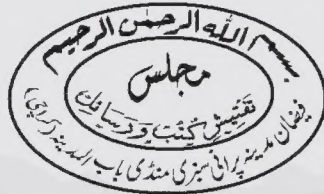 بسم اللہ الرحمن الرحیم
مجلس
تفتیشِ کتب و رسائل
فیضان مدینہ پرانی سبزی منڈی باب المدینہ (کراچی)